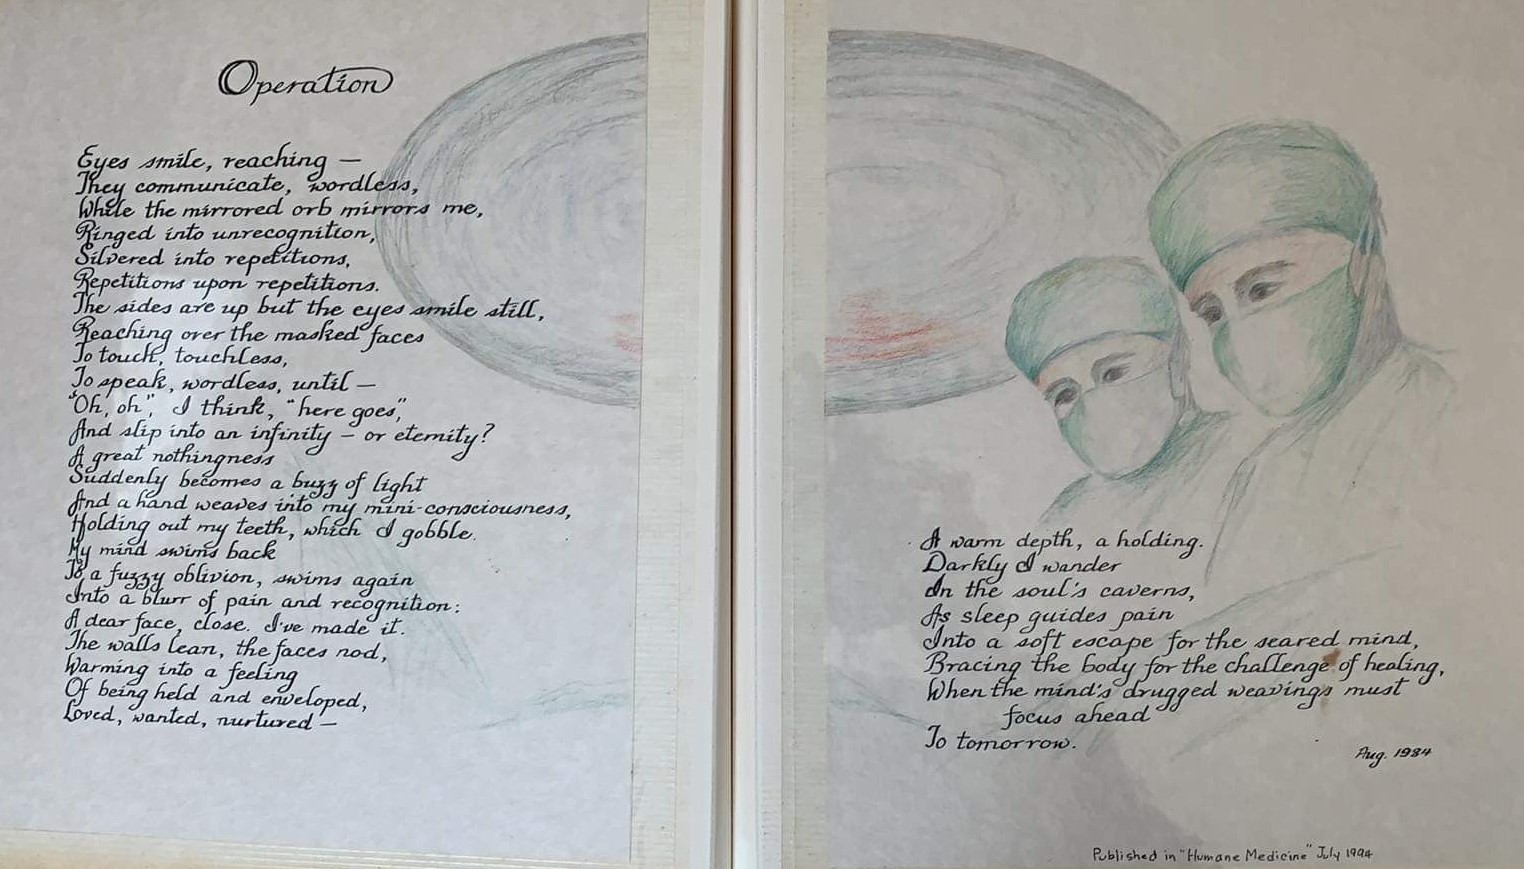 Operation
Eyes smile, reaching —
They communicate, wordless,
While the mirrored orb mirrors me,
Ringed into unrecognition,
Silvered into repetitions,
Repetitions upon repetitions.
The sides are up but the eyes smile still,
Reaching over the masked faces
To touch, touchless,
To speak, wordless, until —
"Oh, oh", I think, "here goes",
And slip into an infinity — or eternity?
A great nothingness
Suddenly becomes a buzz of light
And a hand weaves into my mini-consciousness,
Holding out my teeth, which I gobble.
My mind swims back
To a fuzzy oblivion, swims again
Into a blurr of pain and recognition:
A dear face, close. I've made it.
The walls lean, the faces nod,
Warming into a feeling
Of being held and enveloped,
Loved, wanted, nurtured —
A warm depth, a holding.
Darkly I wander
In the soul's caverns,
As sleep guides pain
Into a soft escape for the seared mind,
Bracing the body for the challenge of healing,
When the mind's drugged weavings must
focus ahead
To tomorrow.
Aug. 1984
Published in "Humane Medicine" July 1994